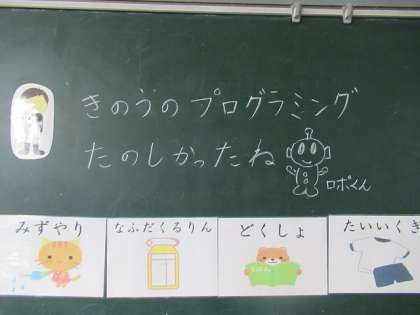 きのうのプログラミング
たのしかったね
ロボくん
みずやり
なふだくるりん
どくしょ
たいいくぎ